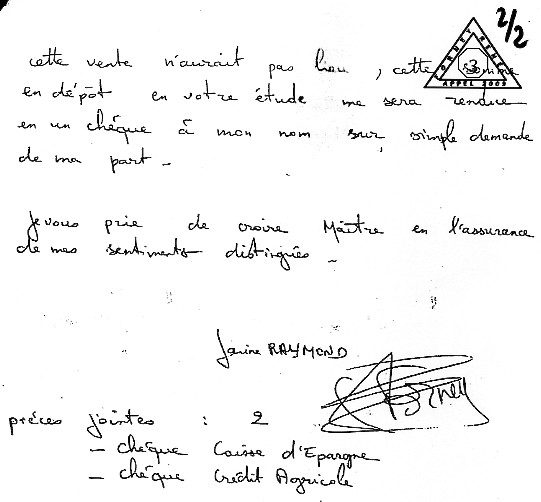 2/2
ORNEY RENE
3
APPEL 2009
cette vente n'aurait pas lieu, cette somme
en dépôt en votre étude me sera rendue
en un chéque à mon nom sur simple demande
de ma part -
Je vous prie de croire Maître en l'assurance
de mes sentiments distingués -
Janine RAYMOND
piéces jointes : 2
- chéque Caisse d'Epargne
- chéque Crédit Agricole